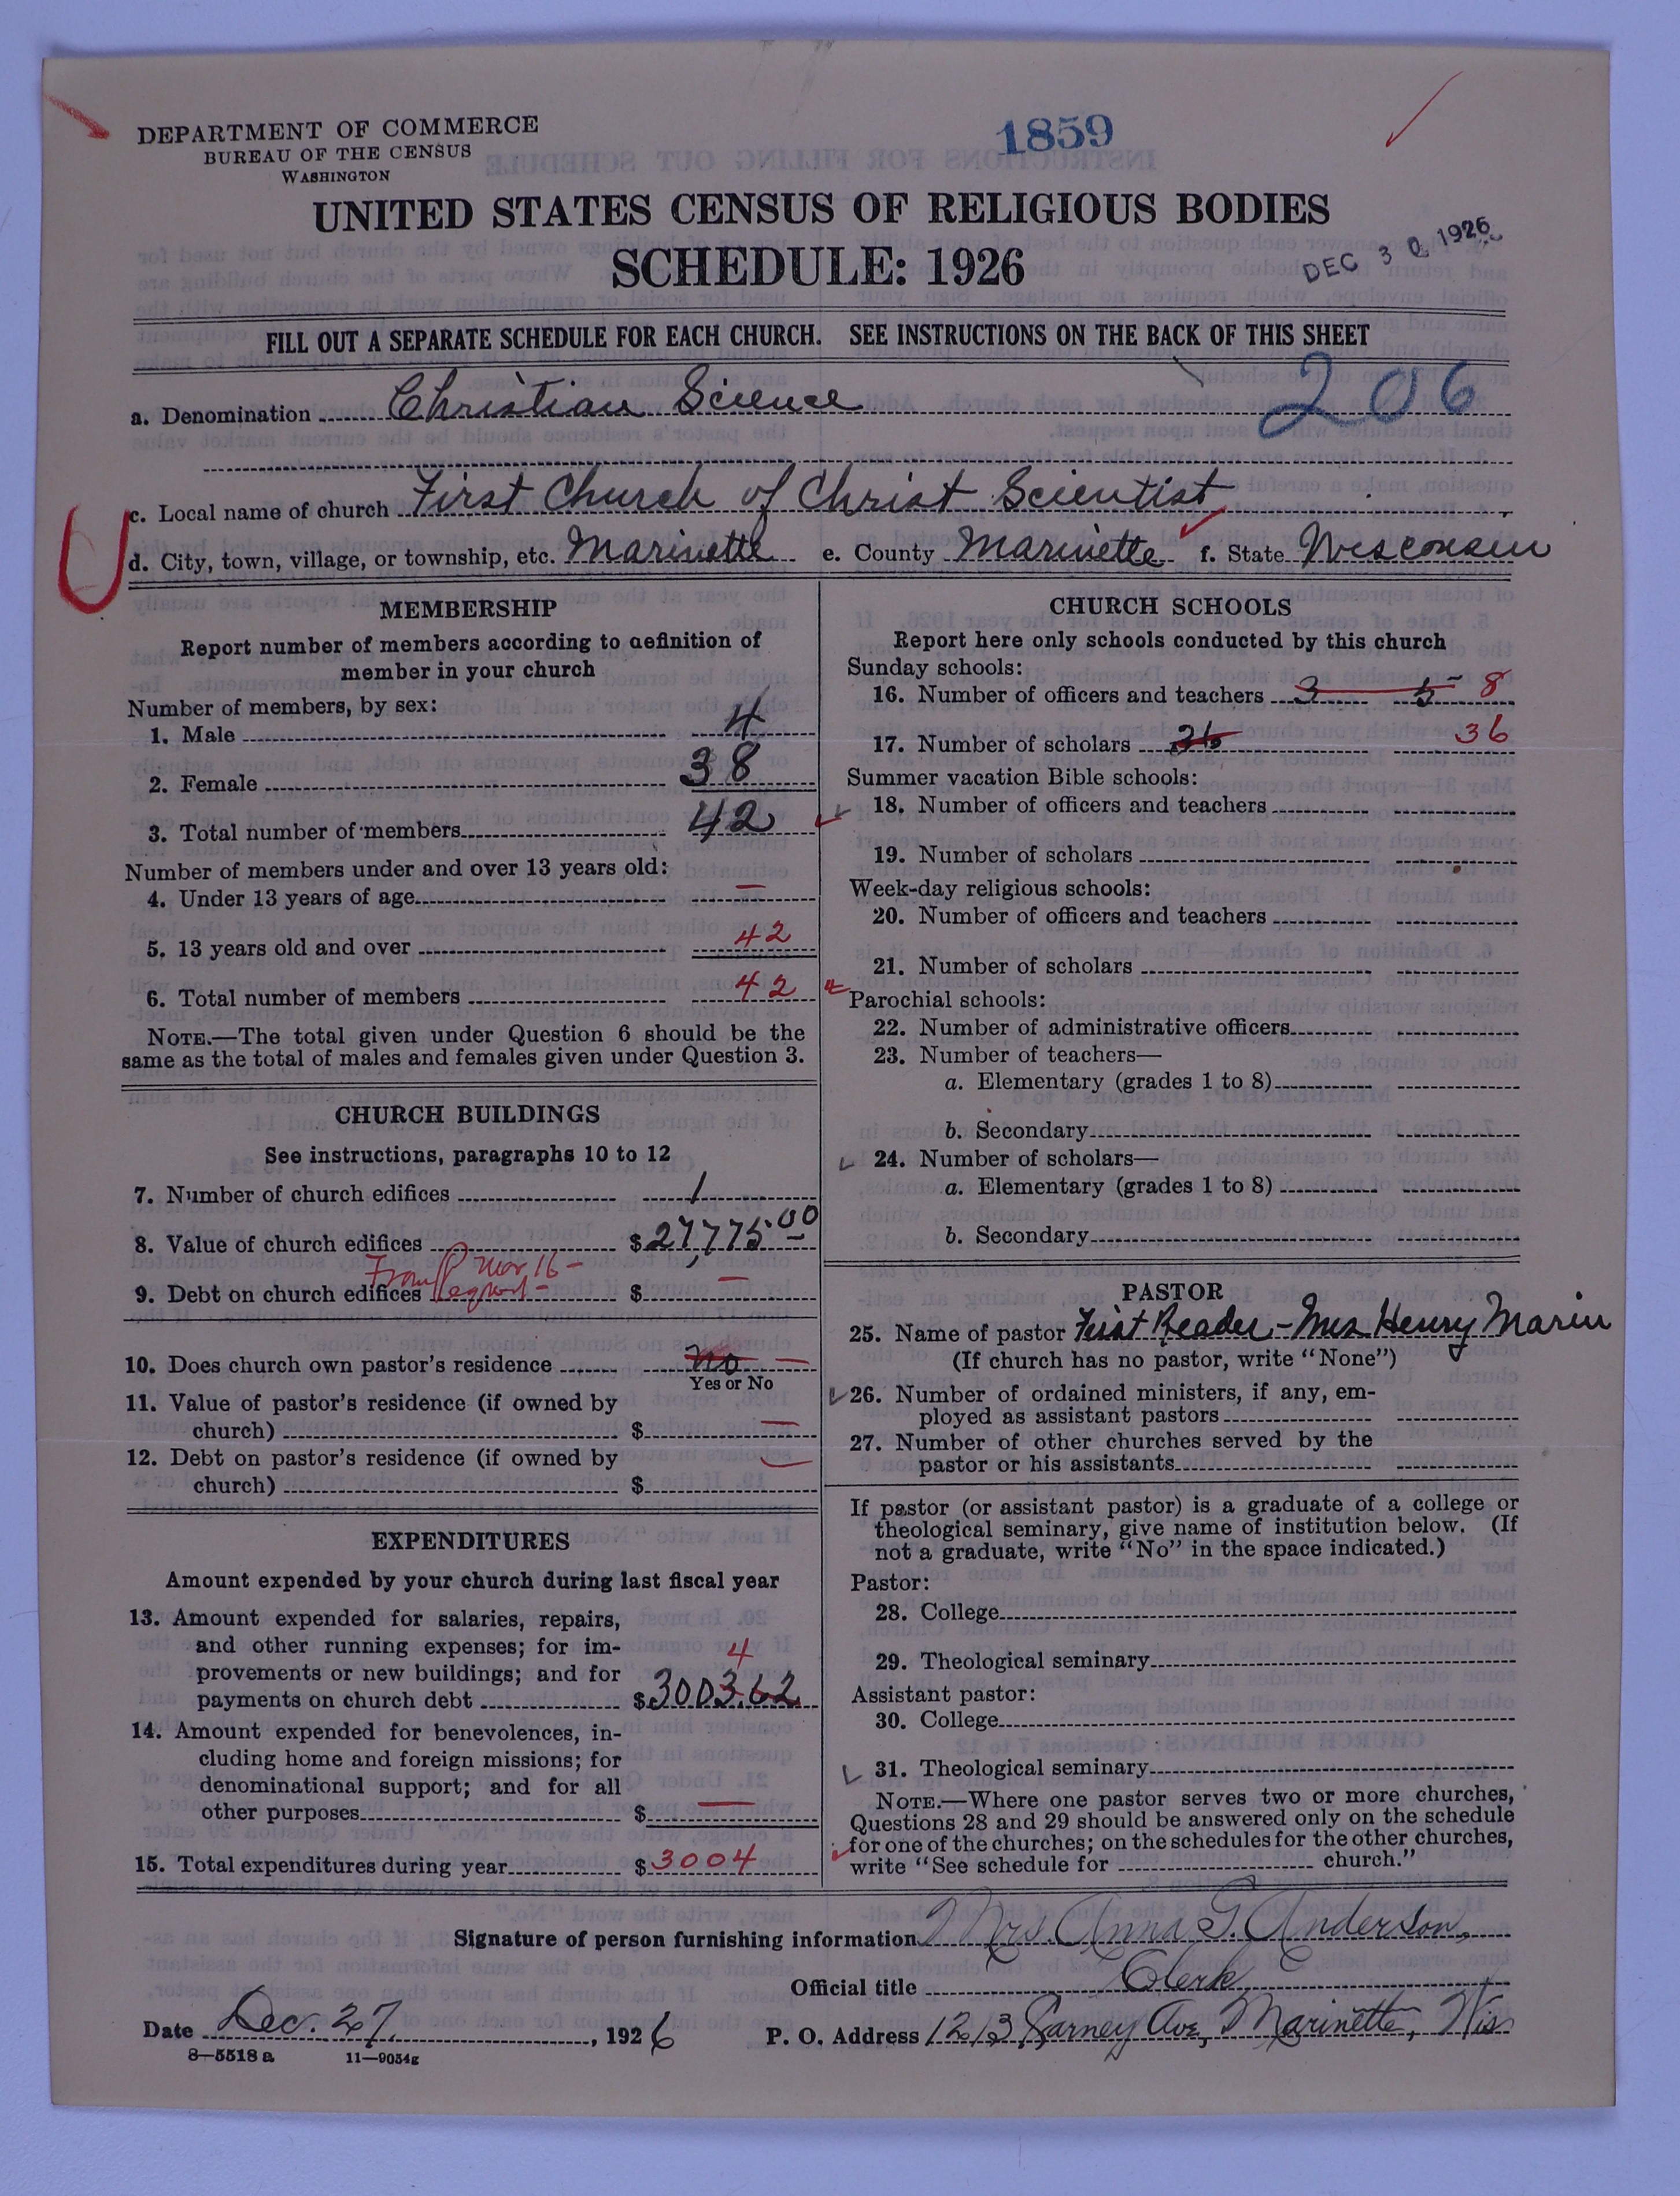 DEPARTMENT OF COMMERCE
BUREAU OF THE CENSUS
WASHINGTON
1859
UNITED STATES CENSUS OF RELIGIOUS BODIES
SCHEDULE: 1926
DEC 30 1926
FILL OUT A SEPARATE SCHEDULE FOR EACH CHURCH. SEE INSTRUCTIONS ON THE BACK OF THIS SHEET
a. Denomination Christian Science 206
c. Local name of church First Church of Christ Scientist
d. City, town, village, or township, etc. Marinette e. County Marinette f. State Wisconsin
MEMBERSHIP
Report number of members according to definition of
member in your church
Number of members, by sex:
1. Male 4
2. Female 38
3. Total number of members 42
Number of members under and over 13 years old:
4. Under 13 years of age —
5. 13 years old and over 42
6. Total number of members 42
NOTE.—The total given under Question 6 should be the
same as the total of males and females given under Question 3.
CHURCH BUILDINGS
See instructions, paragraphs 10 to 12
7. Number of church edifices 1
8. Value of church edifices $27,775.00
From Mar 16 –
9. Debt on church edifices $ —
10. Does church own pastor's residence no —
Yes or No
11. Value of pastor's residence (if owned by
church) $ —
12. Debt on pastor's residence (if owned by
church) $ —
EXPENDITURES
Amount expended by your church during last fiscal year
13. Amount expended for salaries, repairs,
and other running expenses; for im-
provements or new buildings; and for
4
payments on church debt $3003.62
14. Amount expended for benevolences, in-
cluding home and foreign missions; for
denominational support; and for all
other purposes $ —
15. Total expenditures during year $3004
CHURCH SCHOOLS
Report here only schools conducted by this church
Sunday schools:
16. Number of officers and teachers 3 5 8
17. Number of scholars 36 36
Summer vacation Bible schools:
18. Number of officers and teachers
19. Number of scholars
Week-day religious schools:
20. Number of officers and teachers
21. Number of scholars
Parochial schools:
22. Number of administrative officers
23. Number of teachers—
a. Elementary (grades 1 to 8)
b. Secondary
24. Number of scholars—
a. Elementary (grades 1 to 8)
b. Secondary
PASTOR
25. Name of pastor First Reader – Mrs Henry Marin
(If church has no pastor, write "None")
26. Number of ordained ministers, if any, em-
ployed as assistant pastors
27. Number of other churches served by the
pastor or his assistants
If pastor (or assistant pastor) is a graduate of a college or
theological seminary, give name of institution below. (If
not a graduate, write "No" in the space indicated.)
Pastor:
28. College
29. Theological seminary
Assistant pastor:
30. College
31. Theological seminary
NOTE.—Where one pastor serves two or more churches,
Questions 28 and 29 should be answered only on the schedule
for one of the churches; on the schedules for the other churches,
write "See schedule for church."
Signature of person furnishing information Mrs. Anna G. Anderson,
Official title Clerk
Date Dec. 27, 1926 P. O. Address 1213 Carney Ave, Marinette, Wis
8—5518 a 11—9054g